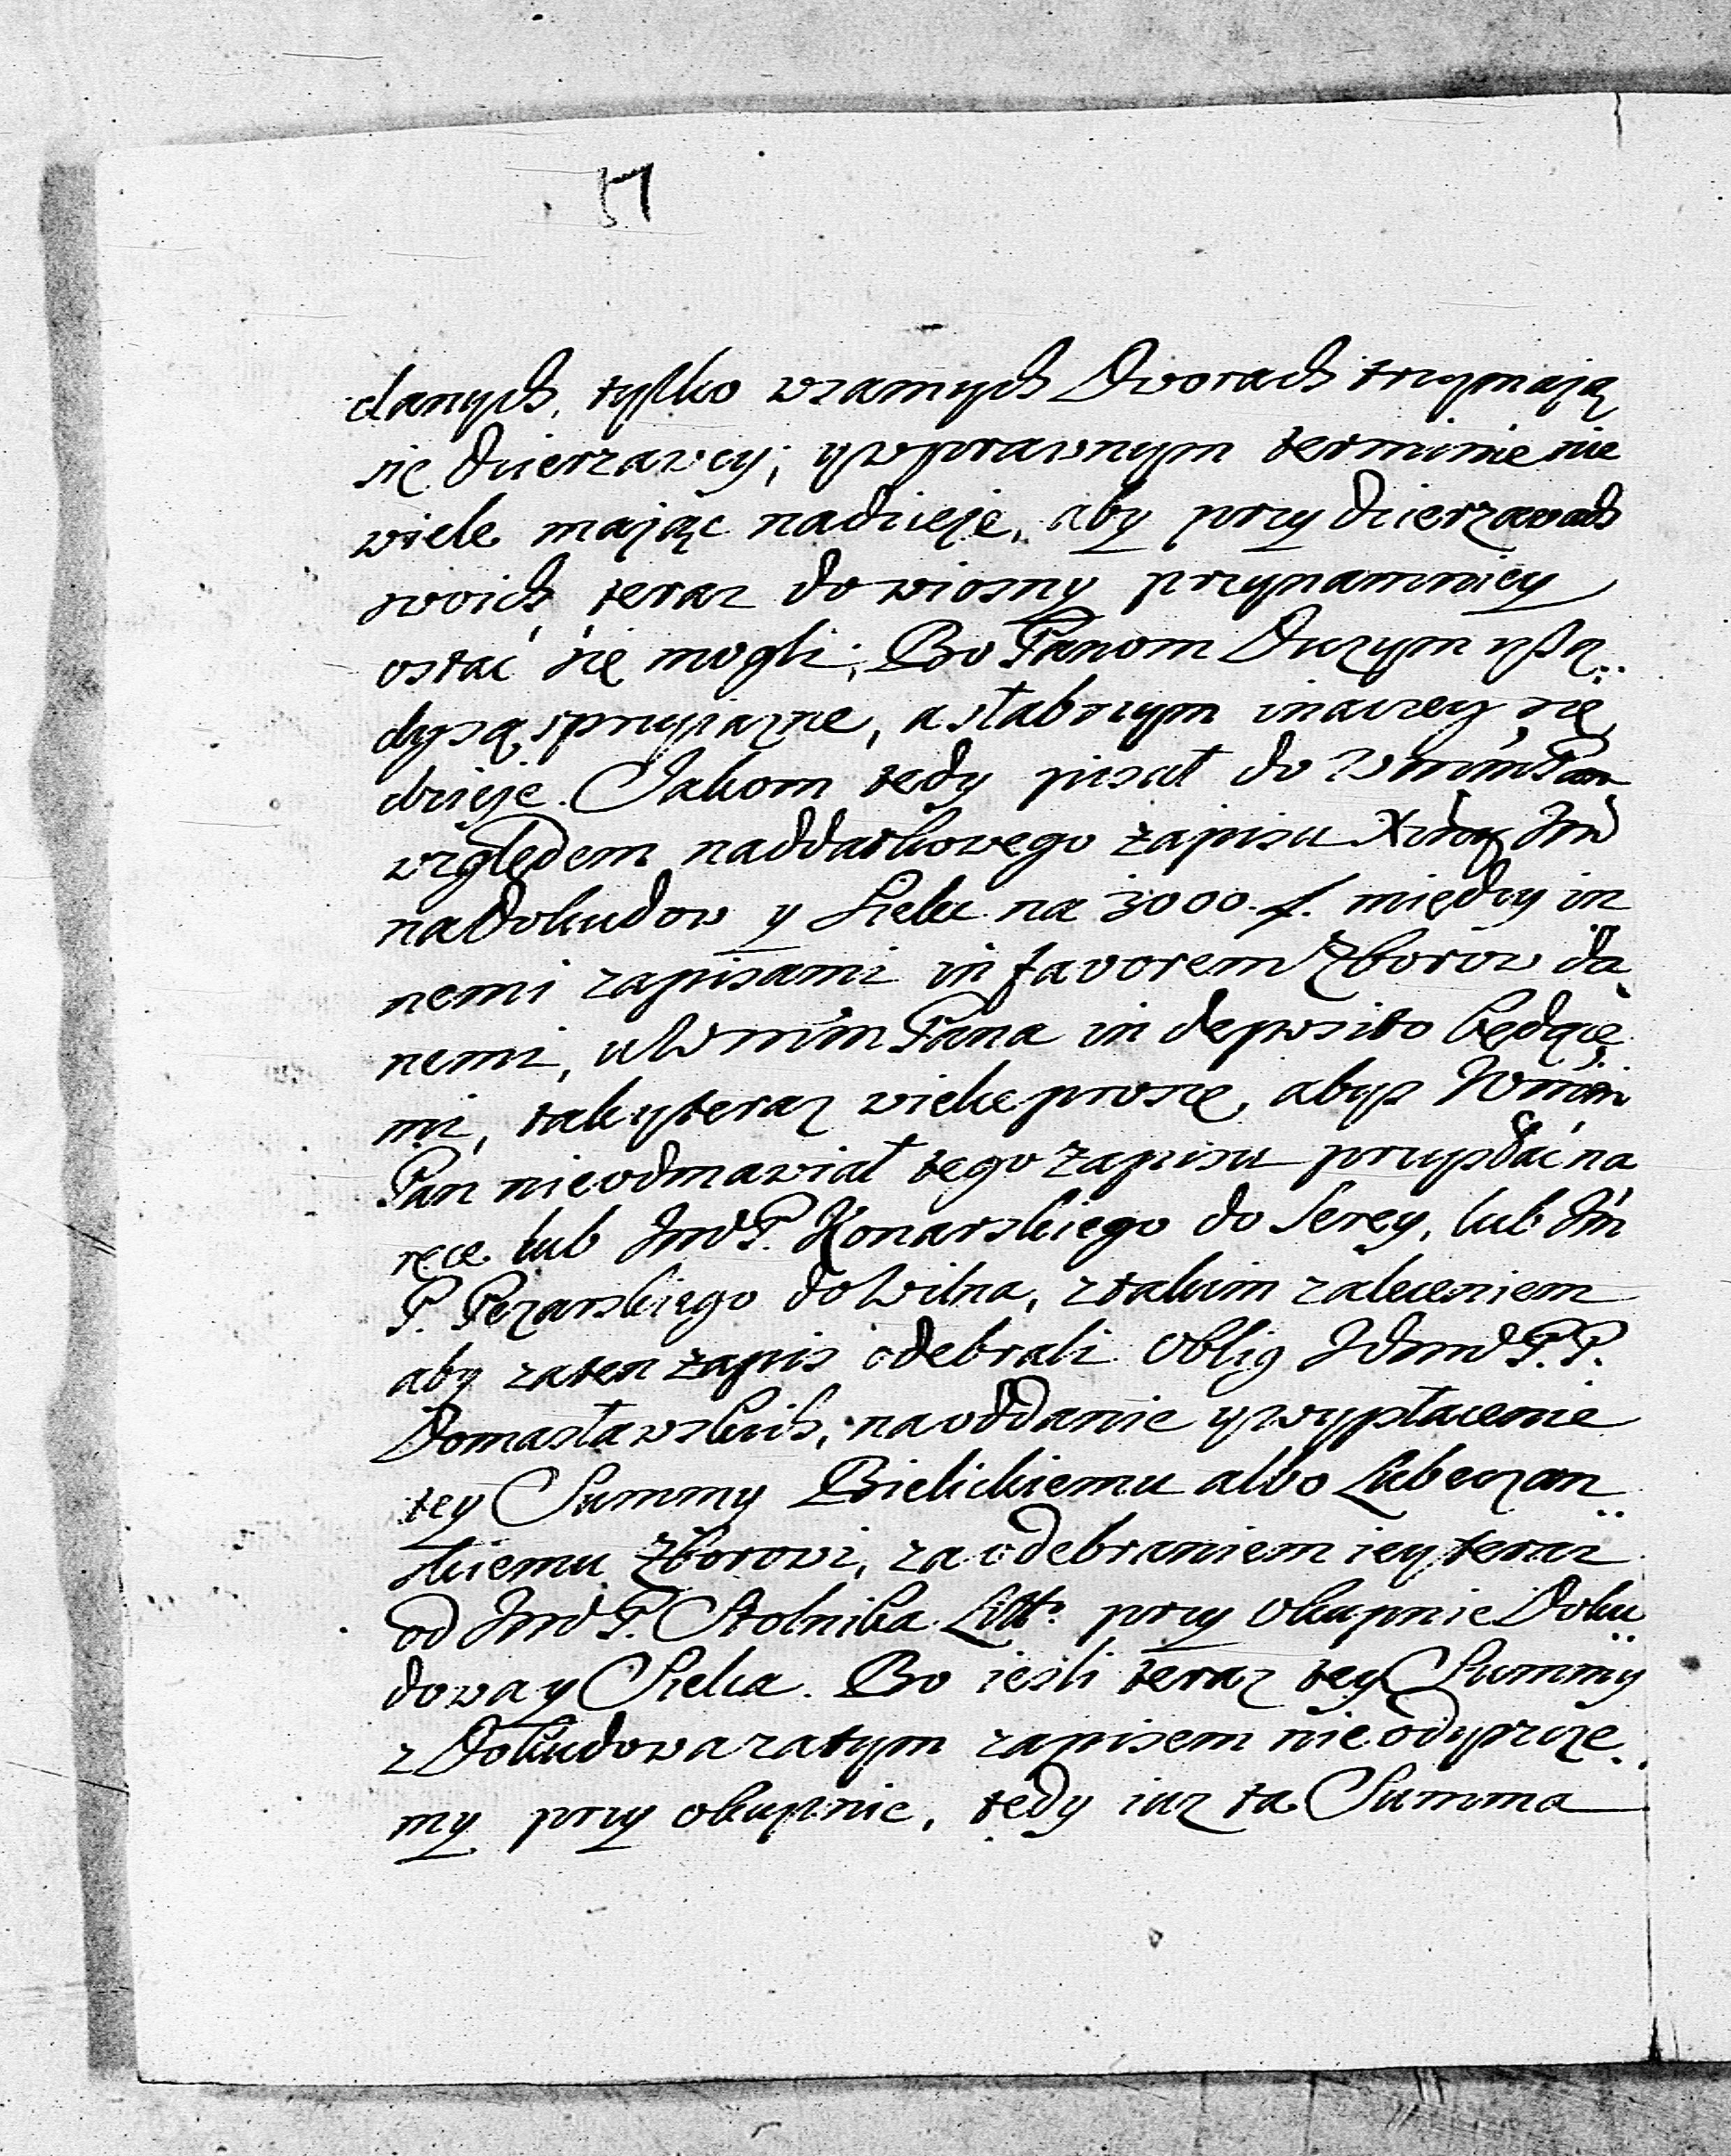 51
danych, tylko w samych Dworach trzymaią
się Dzierzawcy; y w prawnym terminie nie
wiele mając nadzieje, aby przy dzierzawach
swoich teraz do wiosny przynamniey
ostać się mogli; Bo Panom Duzym y Są„
dy są sprzyiazne, a słabszym inaczey się
dzieje. Jakom tedy pisał do WmMPan
względem naddatkowego zapisu Xżney Jm
na Dokudow y Sielec na 3000. f. między in
nemi zapisami in favorem Zborow da„
nemi, u WmMPana in deposito będące„
mi, tak y teraz wielce proszę, abyś WmM
Pan nie odmawiał tego zapisu przysłać na
ręce lub Jm P. Konarskiego do Serey, lub Jm
P. Pezarskiego do Wilna, z takim zaleceniem
aby za ten zapis odebrali Oblig Jchm P.P.
Domasławskich, na oddanie y wypłacenie
tey Summy Bielickiemu albo Lubeczan„
skiemu Zborowi, za odebraniem iey teraz
od Jm P. Stolnika Litt. przy okupnie Doku„
dowa y Sielca. Bo iesli teraz tey Summy
z Dokudowa za tym zapisem nie odyprze„
my przy okupnie, tedy iuz ta Summa